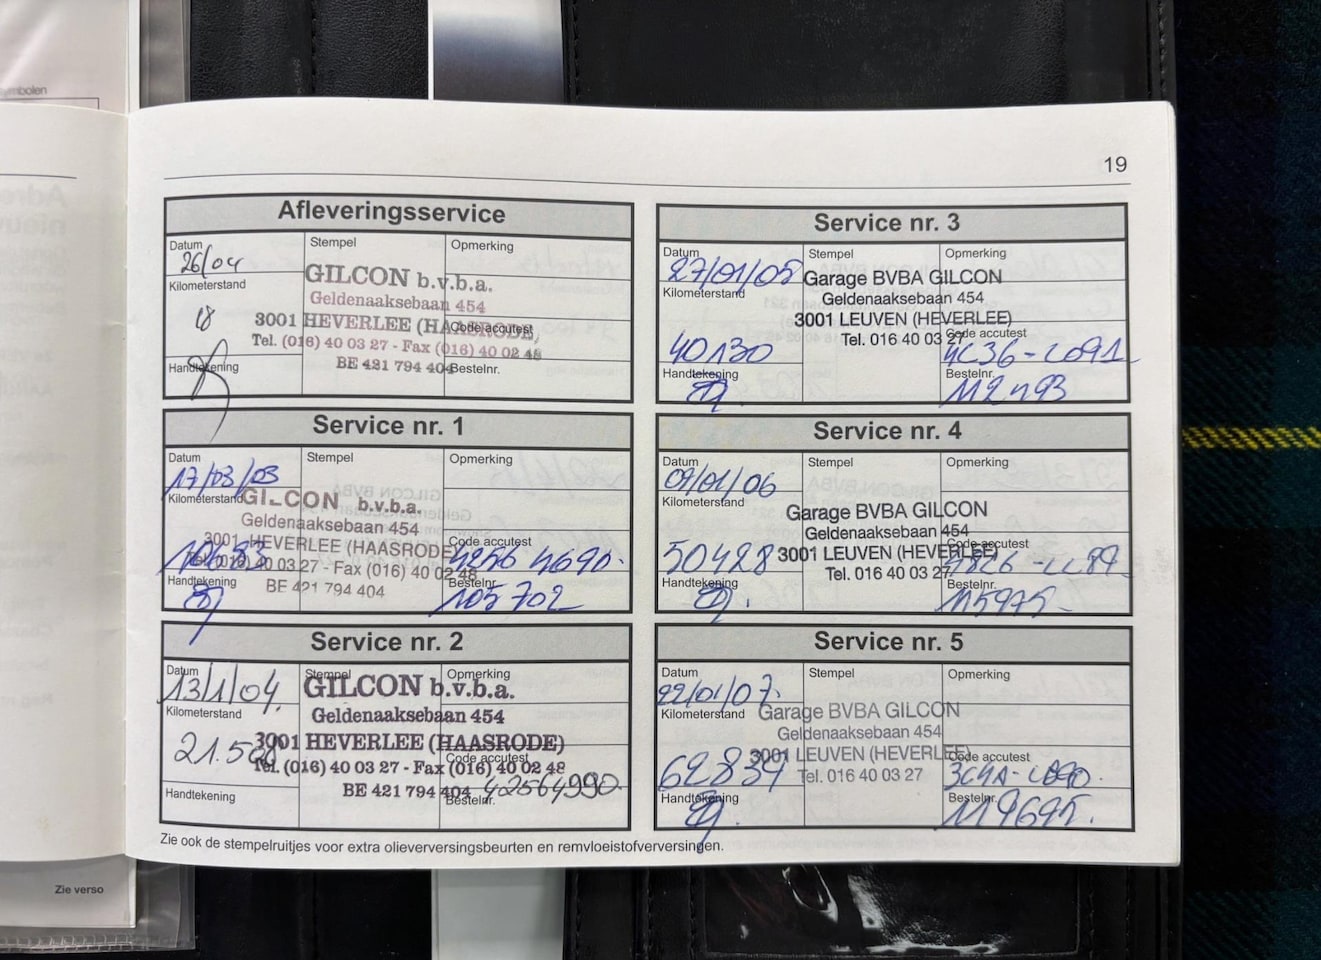 ymbolen
Zie verso
19
Afleveringsservice
Datum
26/04
Stempel
Opmerking
Kilometerstand
18
GILCON b.v.b.a.
Geldenaaksebaan 454
3001 HEVERLEE (HAASRODE)
Tel. (016) 40 03 27 - Fax (016) 40 02 48
BE 421 794 404
Code accutest
Handtekening
Bestelnr.
Service nr. 1
Datum
17/03/03
Stempel
Opmerking
Kilometerstand
GILCON b.v.b.a.
Geldenaaksebaan 454
3001 HEVERLEE (HAASRODE)
Tel. (016) 40 03 27 - Fax (016) 40 02 48
BE 421 794 404
Code accutest
4256 4690.
Handtekening
Bestelnr.
105702
Service nr. 2
Datum
13/1/04.
Stempel
Opmerking
Kilometerstand
GILCON b.v.b.a.
Geldenaaksebaan 454
3001 HEVERLEE (HAASRODE)
Tel. (016) 40 03 27 - Fax (016) 40 02 48
BE 421 794 404
Code accutest
42564990.
Handtekening
Bestelnr.
Service nr. 3
Datum
27/01/05
Stempel
Opmerking
Kilometerstand
40130
Garage BVBA GILCON
Geldenaaksebaan 454
3001 LEUVEN (HEVERLEE)
Tel. 016 40 03 27
Code accutest
Handtekening
Bestelnr.
Service nr. 4
Datum
09/01/06
Stempel
Opmerking
Kilometerstand
50428
Garage BVBA GILCON
Geldenaaksebaan 454
3001 LEUVEN (HEVERLEE)
Tel. 016 40 03 27
Code accutest
Handtekening
Bestelnr.
115975
Service nr. 5
Datum
22/01/07.
Stempel
Opmerking
Kilometerstand
62834
Garage BVBA GILCON
Geldenaaksebaan 454
3001 LEUVEN (HEVERLEE)
Tel. 016 40 03 27
Code accutest
Handtekening
Bestelnr.
119695.
Zie ook de stempelruitjes voor extra olieverversingsbeurten en remvloeistofverversingen.